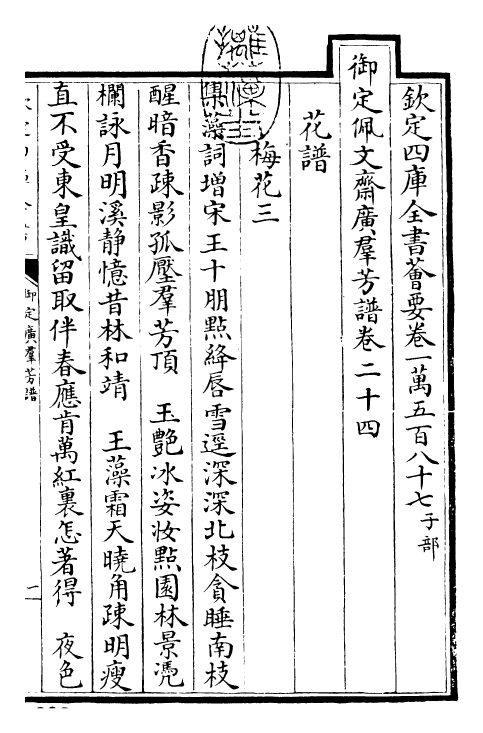 欽定四庫全書薈要卷一萬五百八十七子部
御定佩文齋廣羣芳譜卷二十四
花譜
梅花三
集藻詞增宋王十朋點絳唇雪逕深深北枝貪睡南枝
醒暗香疎影孤壓羣芳頂 玉艷冰姿妝點園林景凴
欄詠月明溪静憶昔林和靖 王藻霜天曉角疎明瘦
直不受東皇識留取伴春應肯萬紅裏怎著得 夜色
御定廣羣芳譜
一